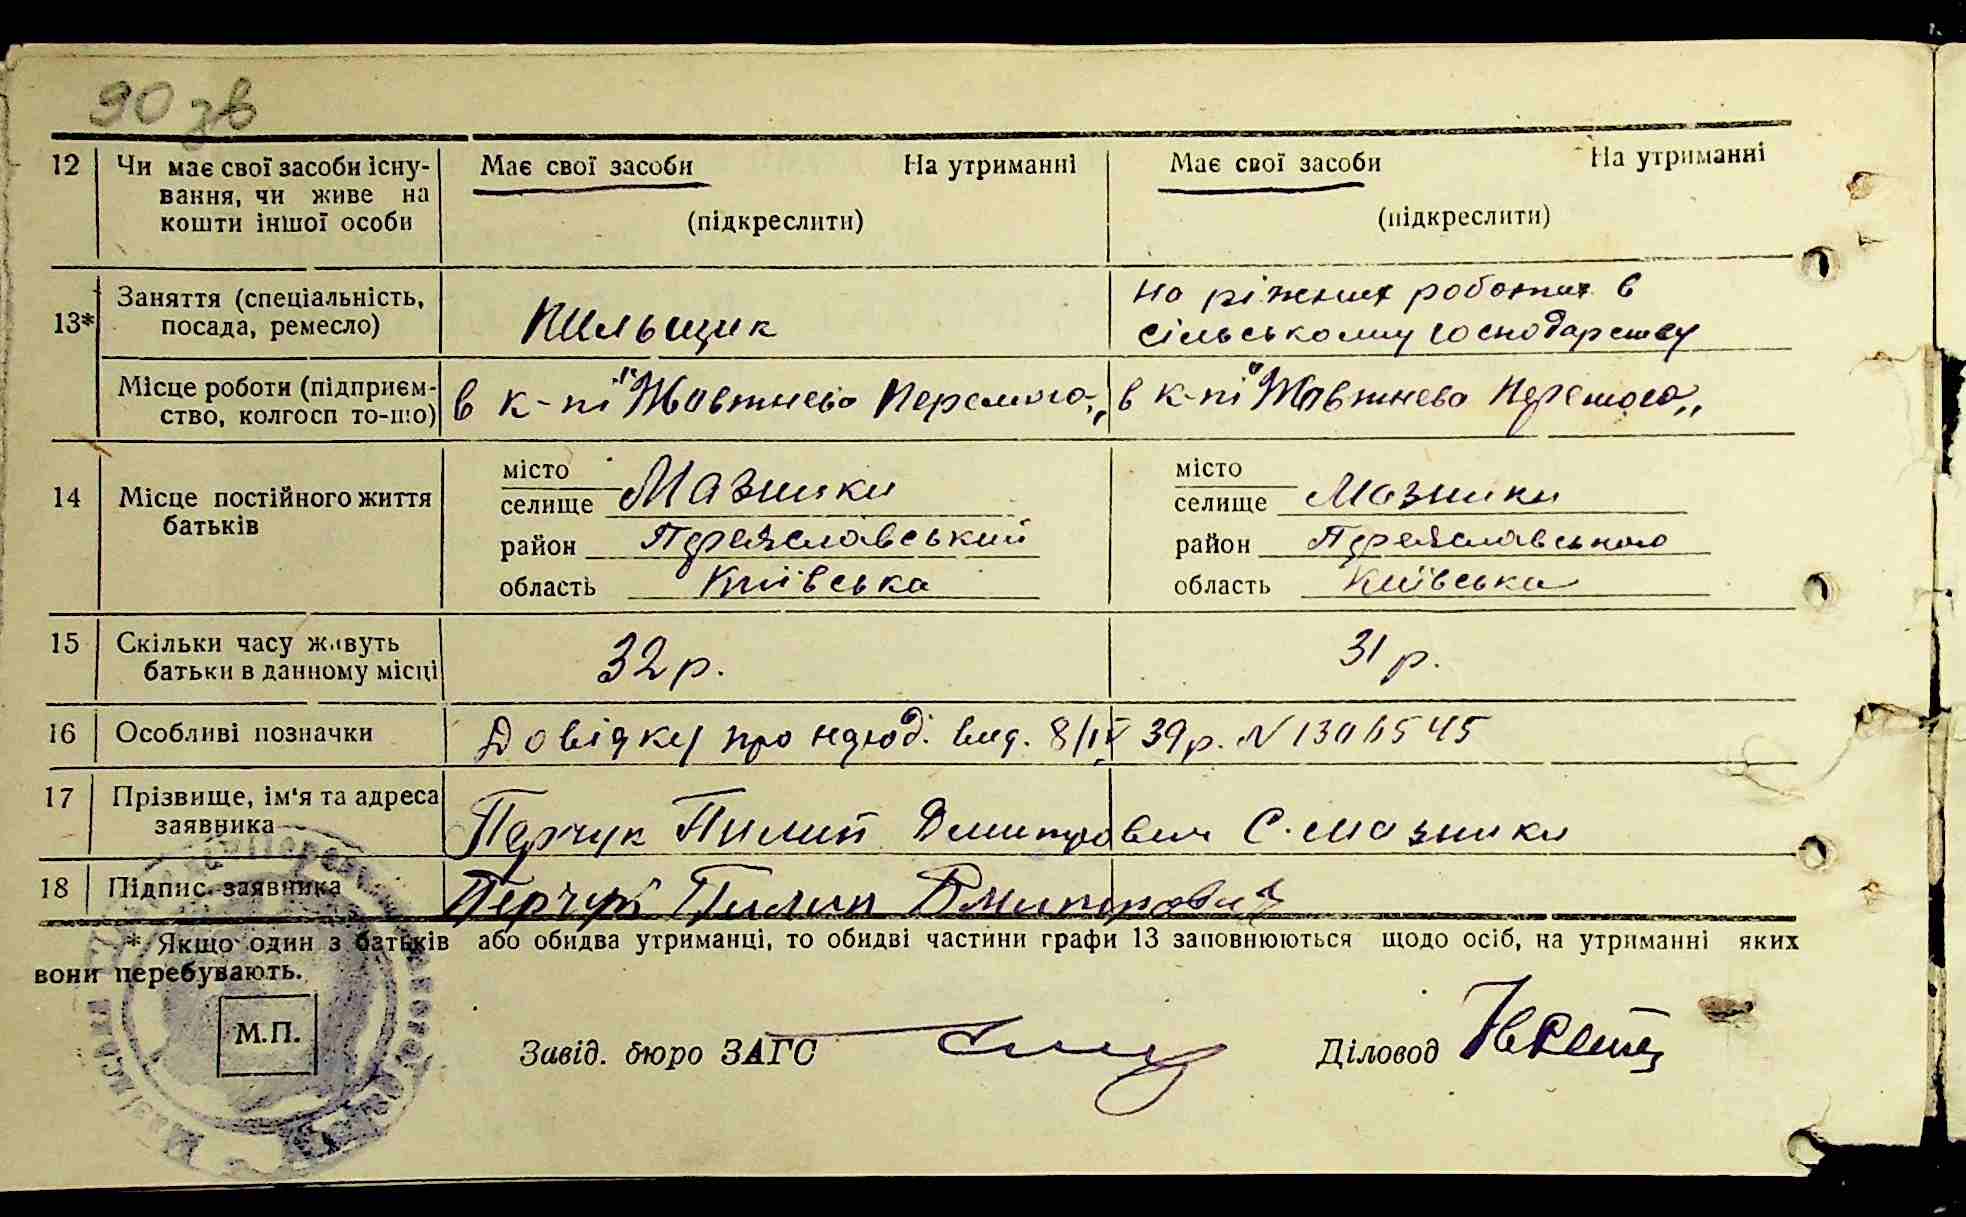 90 зв
12 Чи має свої засоби існу- Має свої засоби На утриманні Має свої засоби На утриманні
вання, чи живе на
кошти іншої особи (підкреслити) (підкреслити)
13* Заняття (спеціальність, посада, ремесло) Пильщик На ріжних роботах в
сільському господарству
Місце роботи (підприєм- в к-пі "Жовтнева Перемога" в к-пі "Жовтнева Перемога"
ство, колгосп то-що)
14 Місце постійного життя батьків
місто
селище Мазники
район Переяславський
область Київська
місто
селище Мазники
район Переяславського
область Київська
15 Скільки часу живуть 32 р. 31 р.
батьки в данному місці
16 Особливі позначки Довідку про народ. вид. 8/IV 39 р. N
17 Прізвище, ім'я та адреса Перчук Пилип Дмитрович С. Мазники
заявника
18 Підпис заявника Перчук Пилип Дмитрович
* Якщо один з батьків або обидва утриманці, то обидві частини графи 13 заповнюються щодо осіб, на утриманні яких
вони перебувають.
М.П.
Завід. бюро ЗАГС Діловод